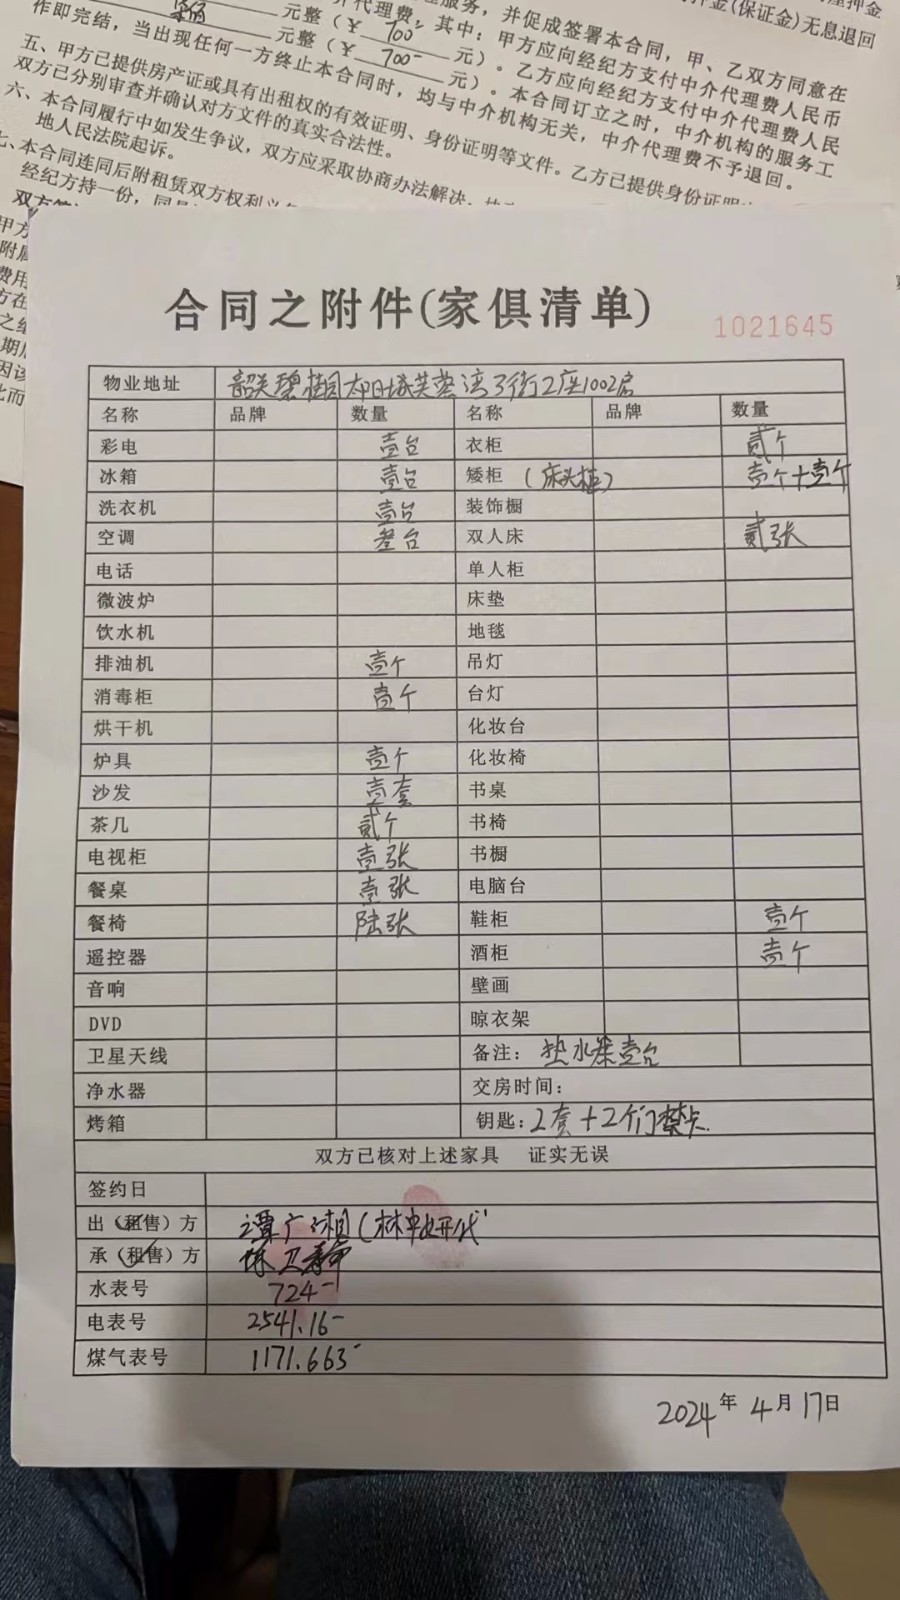 元整（￥ 700 元）。乙方应向经纪方支付中介代理费人民币
元整（￥ 700- 元）。本合同订立之时，中介机构的服务工
作即完结，当出现任何一方终止本合同时，均与中介机构无关，中介代理费不予退回。
五、甲方已提供房产证或具有出租权的有效证明、身份证明等文件。乙方已提供身份证明
双方已分别审查并确认对方文件的真实合法性。
六、本合同履行中如发生争议，双方应采取协商办法解决，
地人民法院起诉。
七、本合同连同后附租赁双方权利义
经纪方持一份，同
合同之附件(家俱清单)
1021645
物业地址 韶关碧桂园太阳城芙蓉湾3街2座1002房
名称 品牌 数量 名称 品牌 数量
彩电 壹台 衣柜 贰个
冰箱 壹台 矮柜 (床头柜) 壹个+壹个
洗衣机 壹台 装饰橱
空调 叁台 双人床 贰张
电话 单人柜
微波炉 床垫
饮水机 地毯
排油机 壹个 吊灯
消毒柜 壹个 台灯
烘干机 化妆台
炉具 壹个 化妆椅
沙发 壹套 书桌
茶几 贰个 书椅
电视柜 壹张 书橱
餐桌 壹张 电脑台
餐椅 陆张 鞋柜 壹个
遥控器 酒柜 壹个
音响 壁画
DVD 晾衣架
卫星天线 备注: 热水器壹台
净水器 交房时间:
烤箱 钥匙: 2套+2个门禁卡.
双方已核对上述家具 证实无误
签约日
出(租售)方 谭广湘(林
承(租售)方
水表号 724-
电表号 2541.16-
煤气表号 1171.663-
2024年4月17日